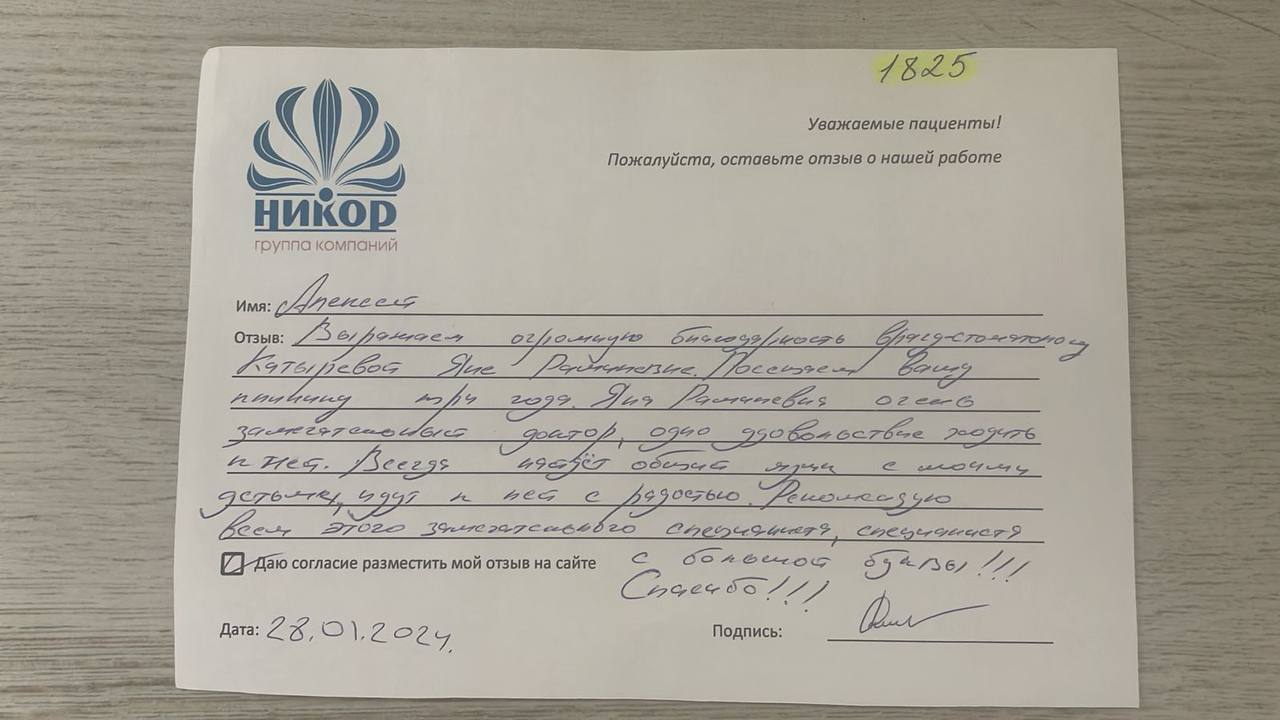 1825
Уважаемые пациенты!
Пожалуйста, оставьте отзыв о нашей работе
НИКОР
группа компаний
Имя: Алексей
Отзыв: Выражаем огромную благодарность врачу-стоматологу
Катыревой Яне Рамановне. Посещаем вашу
клинику три года. Яна Рамановна очень
замечательный доктор, одно удовольствие ходить
к ней. Всегда найдёт общий язык с моими
детьми, идут к ней с радостью. Рекомендую
всем этого замечательного специалиста, специалиста
с большой буквы!!!
Спасибо!!!
Даю согласие разместить мой отзыв на сайте
Дата: 28.01.2024.
Подпись: